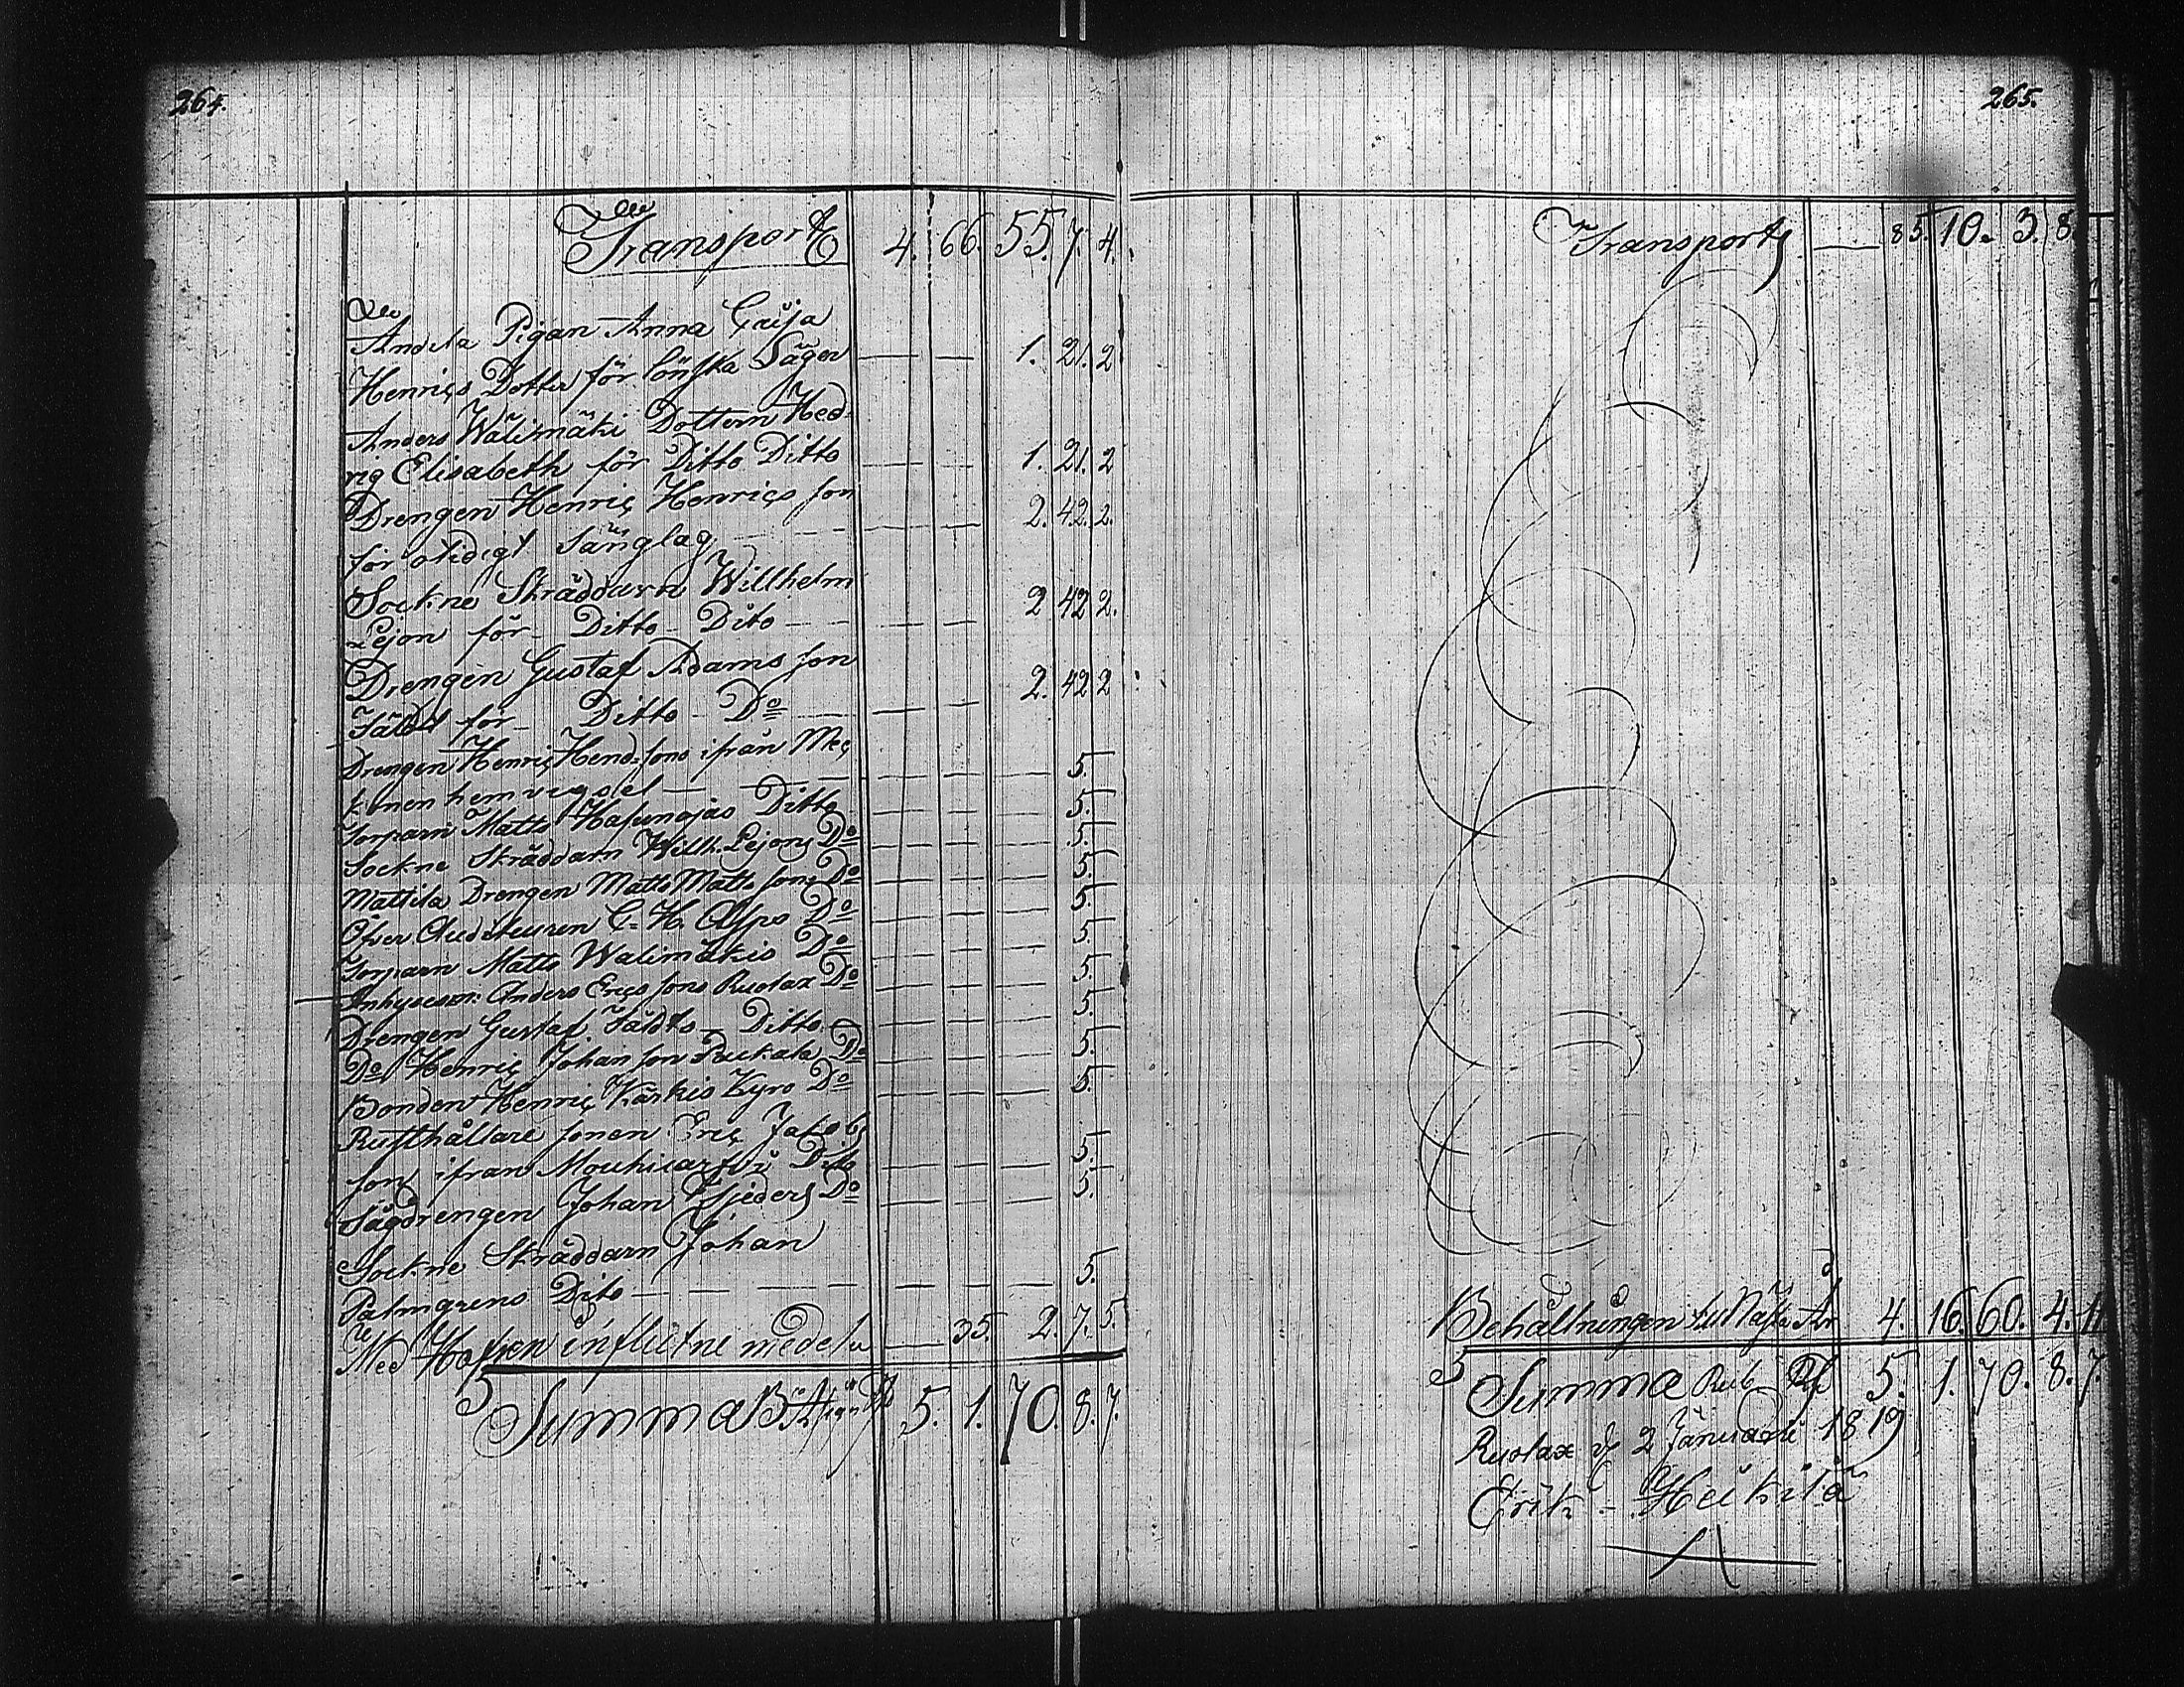 264.
Transport 4. 66. 55. 7. 4.
Andila Pigan Anna Caisa
Henrics Dotter för lönska Läger — — 1. 21. 2
Anders Wälimäki Dottern Hed-
vig Elisabeth för Ditto Ditto — — 1. 21. 2
Drengen Henric Henrics son
för otidigt Sänglag — — 2. 42. 2.
Sockne Skräddarn Willhelm
Lejon för Ditto Dito — — 2 42 2.
Drengen Gustaf Adams son
Fäldt för Ditto Do — — 2. 42 2
Drengen Henric Hend. sons ifrån
hemvigsel — — — 5.
Torparn Matts Ditto — — — 5.
Sockne Skräddarn Willh. Lejons Do — — — 5.
Mattila Drengen Matts Matts sons Do — — — 5.
Öfver Auditeuren C. H. Do — — — 5.
Torparn Matts Walimäkis Do — — — 5.
Inhyses m: Anders Erics sons Ruotax Do — — — 5.
Drengen Gustaf Fäldts Ditto — — — 5.
Do Henric Johan son Do — — — 5.
Bonden Henric Kärkis Kyro Do — — — 5.
Rusthållare sonen Eric Jacobs
son ifran Dito — — — 5.
Sågdrengen Johan Do — — — 5.
Sockne Skräddarn Johan
Palmgrens Dito — — — 5.
Med Hafven influtne medel — 35. 2. 7. 5
Summa 5. 1. 70. 8. 7.
265.
Transport — 85. 10. 3. 8.
Behållningen till Näst År 4. 16. 60. 4. 11
Summa Rub 5. 1. 70. 8. 7.
Ruotax d 2 Januarii 1819
Erik Heikilä